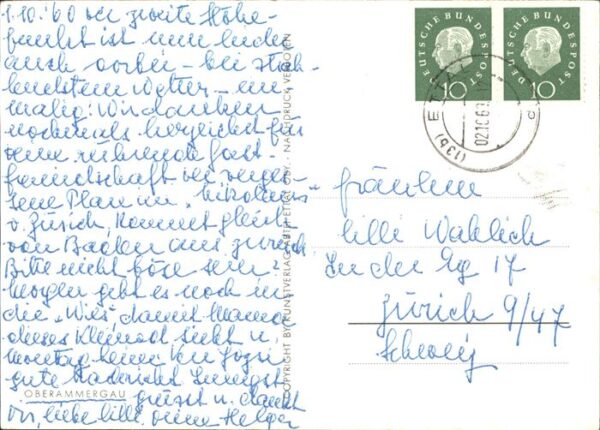 1.10.'60 der zweite Höhe-
punkt ist nun leider
auch vorbei - bei strah-
lendstem Wetter - ein-
malig! Wir danken
nochmals herzlichst für
Deine rührende Gast-
freundschaft. Der verges-
sene Plan im "Nikolaus"
v. Zürich, kommt gleich
von Baden aus zurück
Bitte nicht böse sein!
Morgen geht es noch in
die "Wies", damit Mama
dieses Kleinod sieht u.
Montag heim. Von
gute Nachricht
grüsst u. dankt
Dir, liebe Lilli, Deine Helga
OBERAMMERGAU
COPYRIGHT BY KUNSTVERLAG ETTAL/OBB. · NACHDRUCK VERBOTEN
DEUTSCHE BUNDESPOST
10
DEUTSCHE BUNDESPOST
10
(13b) ETTAL
02.10.60
Fräulein
Lilli Wahlich
In der Eg 17
Zürich 9/47
Schweiz